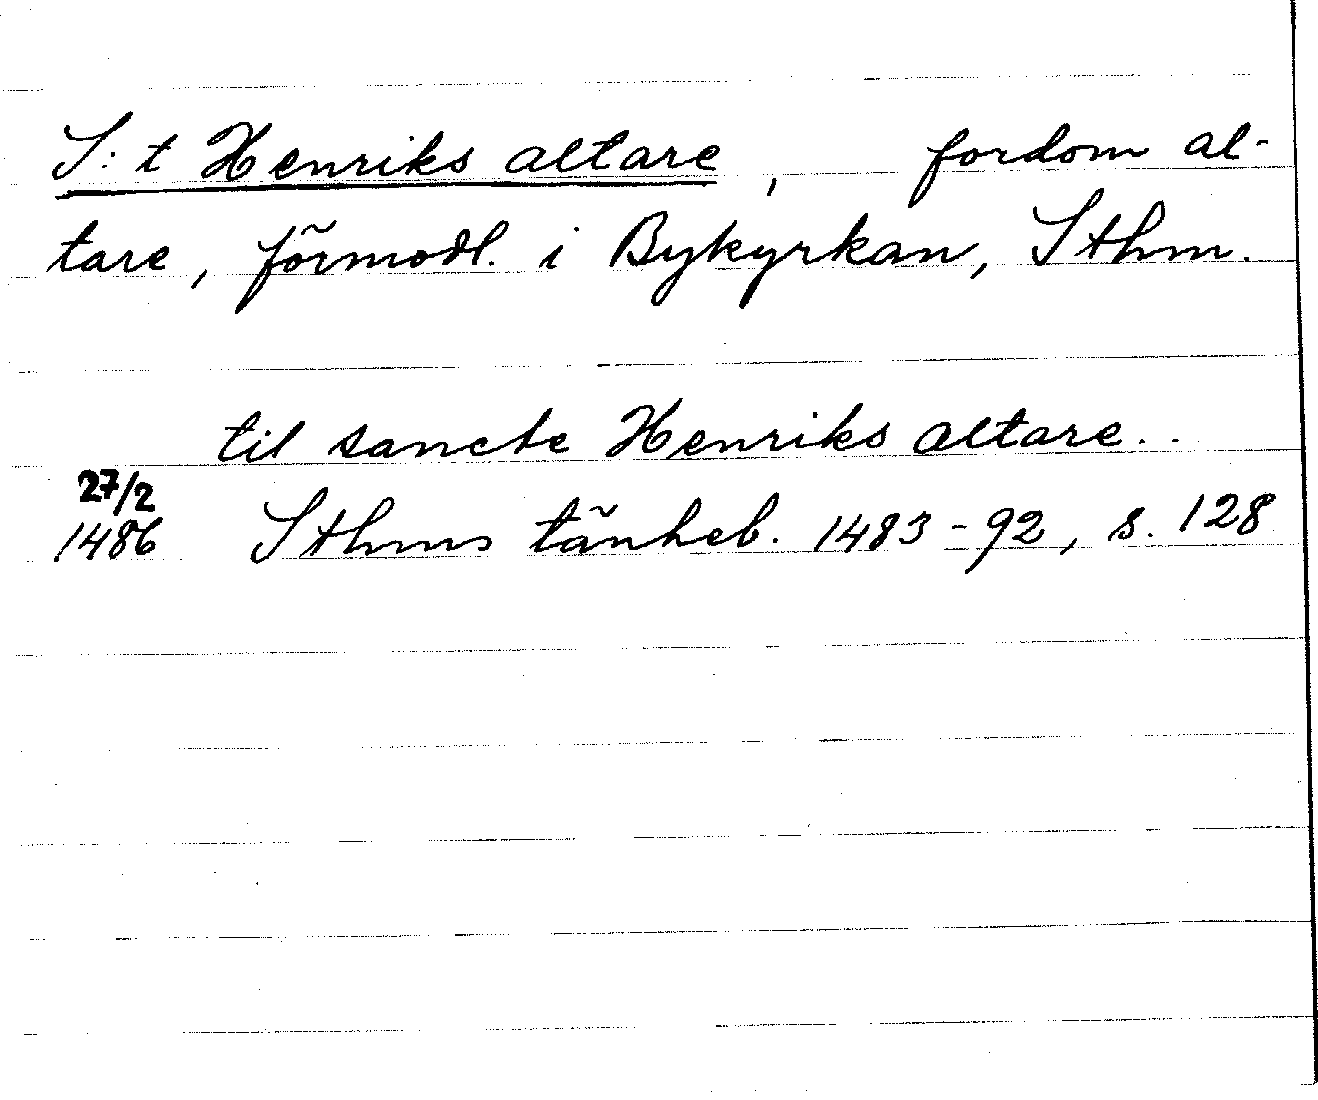 S:t Henriks altare, fordom al-
tare, förmodl. i Bykyrkan, Sthm.
til sancte Henriks altare..
27/2
1486 Sthms tänkeb. 1483-92, s. 128